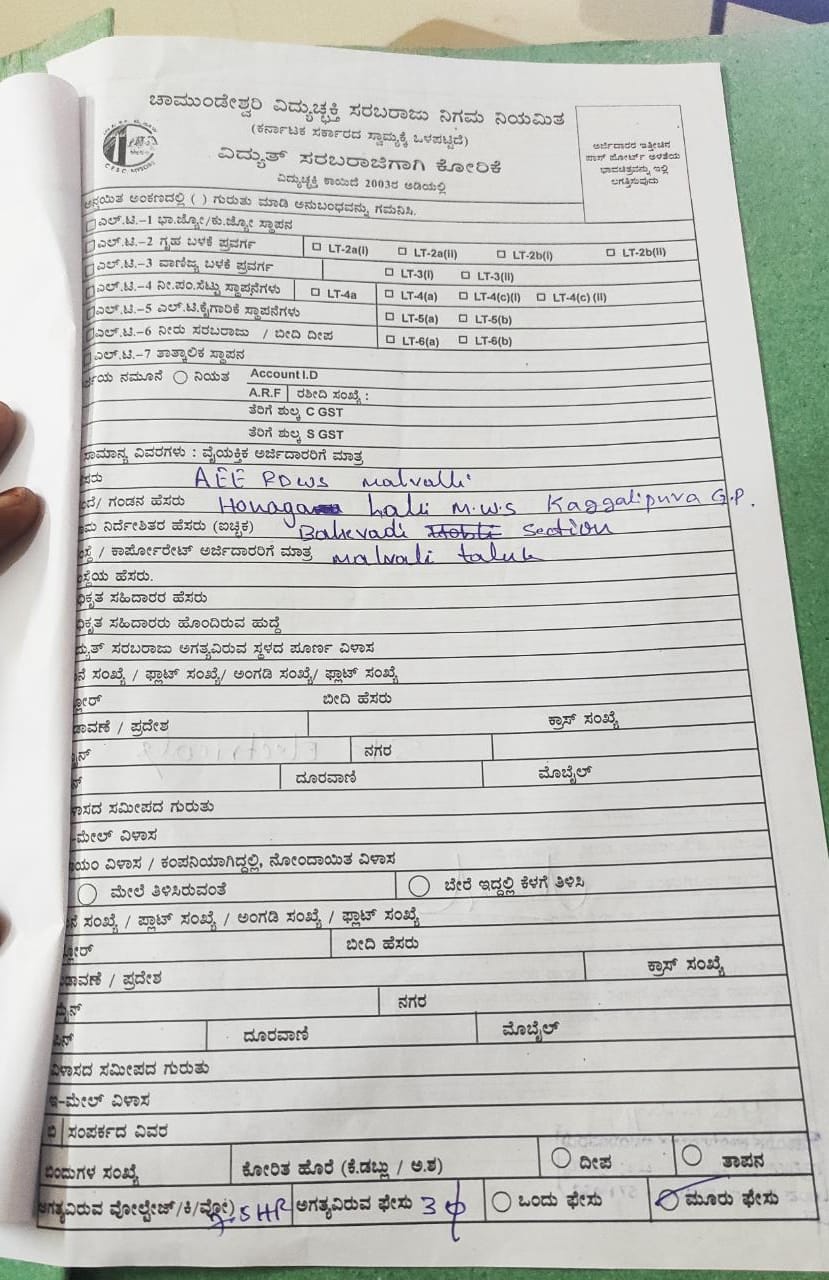 ಚಾಮುಂಡೇಶ್ವರಿ ವಿದ್ಯುಚ್ಛಕ್ತಿ ಸರಬರಾಜು ನಿಗಮ ನಿಯಮಿತ
(ಕರ್ನಾಟಕ ಸರ್ಕಾರದ ಸ್ವಾಮ್ಯಕ್ಕೆ ಒಳಪಟ್ಟಿದೆ)
ವಿದ್ಯುತ್ ಸರಬರಾಜಿಗಾಗಿ ಕೋರಿಕೆ
ವಿದ್ಯುಚ್ಛಕ್ತಿ ಕಾಯಿದೆ 2003ರ ಅಡಿಯಲ್ಲಿ
ಅರ್ಜಿದಾರರ ಇತ್ತೀಚಿನ
ಪಾಸ್ ಪೋರ್ಟ್ ಅಳತೆಯ
ಭಾವಚಿತ್ರವನ್ನು ಇಲ್ಲಿ
ಲಗತ್ತಿಸುವುದು
ಅನ್ವಯಿತ ಅಂಕಣದಲ್ಲಿ ( ) ಗುರುತು ಮಾಡಿ ಅನುಬಂಧವನ್ನು ಗಮನಿಸಿ.
ಎಲ್.ಟಿ.-1 ಭಾ.ಜ್ಯೋ/ಕು.ಜ್ಯೋ ಸ್ಥಾಪನ
ಎಲ್.ಟಿ.-2 ಗೃಹ ಬಳಕೆ ಪ್ರವರ್ಗ LT-2a(i) LT-2a(ii) LT-2b(i) LT-2b(ii)
ಎಲ್.ಟಿ.-3 ವಾಣಿಜ್ಯ ಬಳಕೆ ಪ್ರವರ್ಗ LT-3(i) LT-3(ii)
ಎಲ್.ಟಿ.-4 ನೀ.ಪಂ.ಸೆಟ್ಟು ಸ್ಥಾಪನೆಗಳು LT-4a LT-4(a) LT-4(c)(i) LT-4(c) (ii)
ಎಲ್.ಟಿ.-5 ಎಲ್.ಟಿ.ಕೈಗಾರಿಕೆ ಸ್ಥಾಪನೆಗಳು LT-5(a) LT-5(b)
ಎಲ್.ಟಿ.-6 ನೀರು ಸರಬರಾಜು / ಬೀದಿ ದೀಪ LT-6(a) LT-6(b)
ಎಲ್.ಟಿ.-7 ತಾತ್ಕಾಲಿಕ ಸ್ಥಾಪನ
ನಮೂನೆ ನಿಯತ Account I.D
A.R.F ರಶೀದಿ ಸಂಖ್ಯೆ :
ತೆರಿಗೆ ಶುಲ್ಕ C GST
ತೆರಿಗೆ ಶುಲ್ಕ S GST
ಸಾಮಾನ್ಯ ವಿವರಗಳು : ವೈಯಕ್ತಿಕ ಅರ್ಜಿದಾರರಿಗೆ ಮಾತ್ರ
AEE RDWS Malvalli
ಗಂಡನ ಹೆಸರು halli M.W.S Kaggalipura G.P.
ನಿರ್ದೇಶಿತರ ಹೆಸರು (ಐಚ್ಛಿಕ) section
/ ಕಾರ್ಪೋರೇಟ್ ಅರ್ಜಿದಾರರಿಗೆ ಮಾತ್ರ Malvali taluk
ಹೆಸರು.
ಸಹಿದಾರರ ಹೆಸರು
ಸಹಿದಾರರು ಹೊಂದಿರುವ ಹುದ್ದೆ
ಸರಬರಾಜು ಅಗತ್ಯವಿರುವ ಸ್ಥಳದ ಪೂರ್ಣ ವಿಳಾಸ
ಸಂಖ್ಯೆ / ಫ್ಲಾಟ್ ಸಂಖ್ಯೆ/ ಅಂಗಡಿ ಸಂಖ್ಯೆ/ ಫ್ಲಾಟ್ ಸಂಖ್ಯೆ
ಬೀದಿ ಹೆಸರು
/ ಪ್ರದೇಶ ಕ್ರಾಸ್ ಸಂಖ್ಯೆ
ನಗರ
ದೂರವಾಣಿ ಮೊಬೈಲ್
ಸಮೀಪದ ಗುರುತು
-ಮೇಲ್ ವಿಳಾಸ
ವಿಳಾಸ / ಕಂಪನಿಯಾಗಿದ್ದಲ್ಲಿ, ನೋಂದಾಯಿತ ವಿಳಾಸ
ಮೇಲೆ ತಿಳಿಸಿರುವಂತೆ ಬೇರೆ ಇದ್ದಲ್ಲಿ ಕೆಳಗೆ ತಿಳಿಸಿ
ಸಂಖ್ಯೆ / ಪ್ಲಾಟ್ ಸಂಖ್ಯೆ / ಅಂಗಡಿ ಸಂಖ್ಯೆ / ಫ್ಲಾಟ್ ಸಂಖ್ಯೆ
ಬೀದಿ ಹೆಸರು
/ ಪ್ರದೇಶ ಕ್ರಾಸ್ ಸಂಖ್ಯೆ
ನಗರ
ದೂರವಾಣಿ ಮೊಬೈಲ್
ವಿಳಾಸದ ಸಮೀಪದ ಗುರುತು
ಇ-ಮೇಲ್ ವಿಳಾಸ
ಬಿ ಸಂಪರ್ಕದ ವಿವರ
ಬಿಂದುಗಳ ಸಂಖ್ಯೆ ಕೋರಿತ ಹೊರೆ (ಕೆ.ಡಬ್ಲು / ಅ.ಶ) ದೀಪ ತಾಪನ
ಅಗತ್ಯವಿರುವ ವೋಲ್ಟೇಜ್/ಕಿ/ವೋ) 7.5HP ಅಗತ್ಯವಿರುವ ಫೇಸು 3ϕ ಒಂದು ಫೇಸು ಮೂರು ಫೇಸು